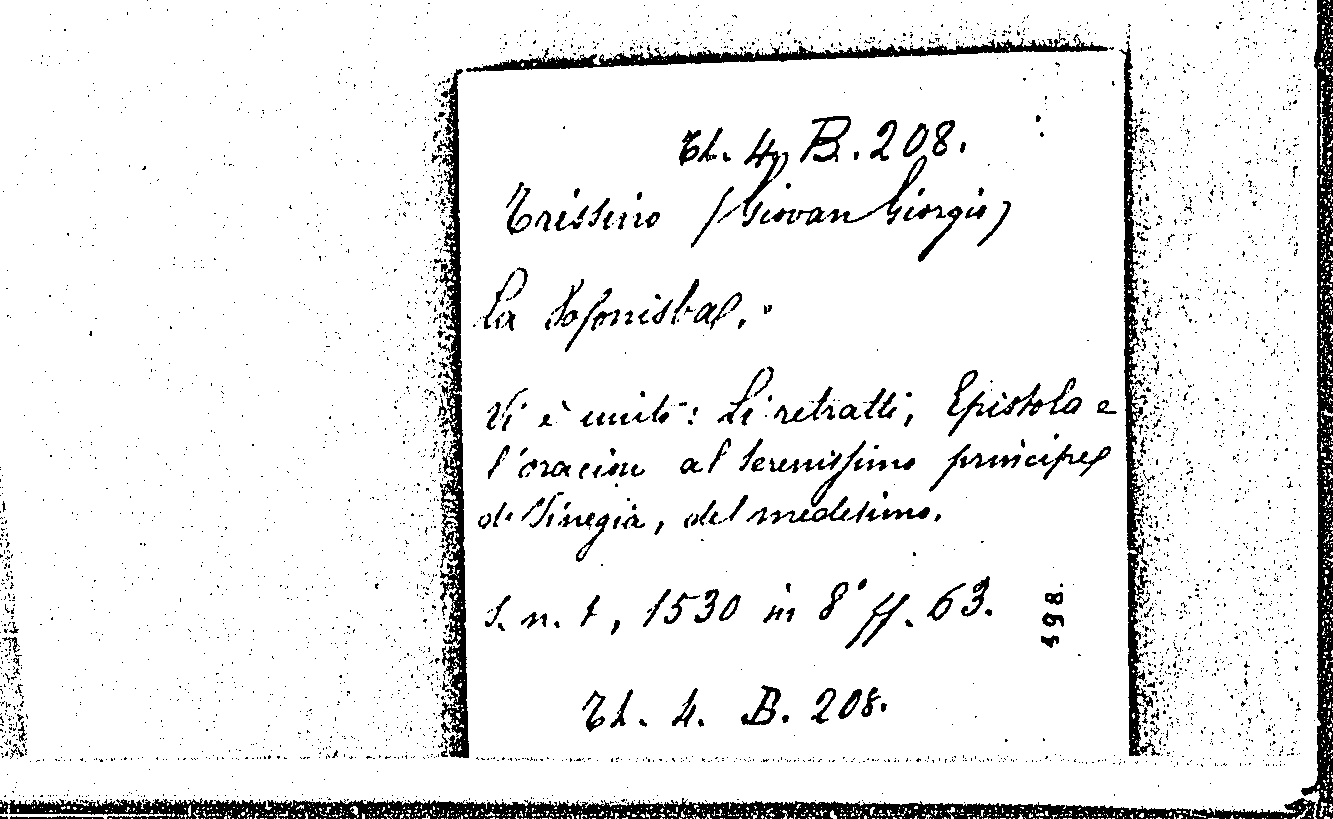 Th. 4. B. 208.
Trissino (Giovan Giorgio)
La Sofonisba.
Vi è unito: Li retratti, Epistola e
l'oracion al Serenissimo principe
di Vinegia, del medesimo.
S. n. t, 1530 in 8° ff. 63.
498
Th. 4. B. 208.